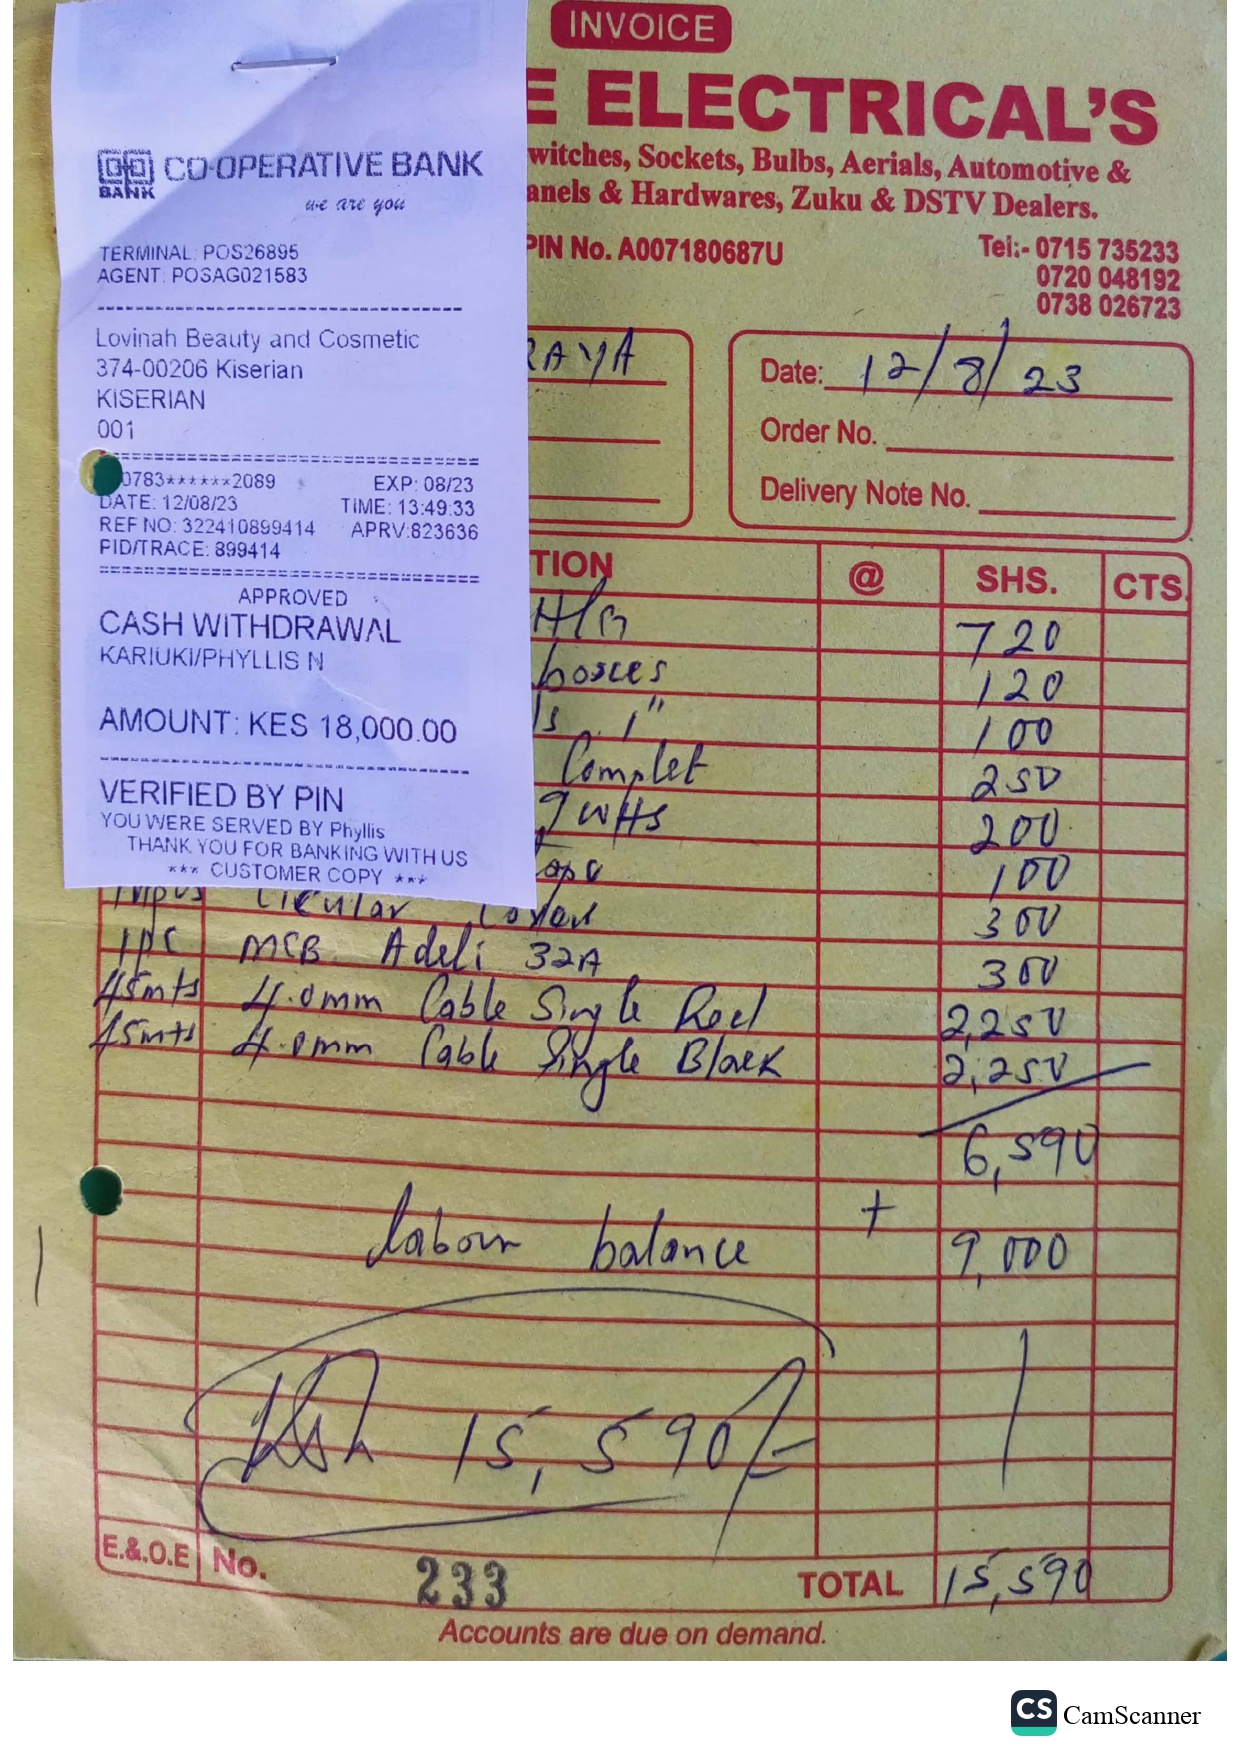 INVOICE
E ELECTRICAL'S
witches, Sockets, Bulbs, Aerials, Automotive &
anels & Hardwares, Zuku & DSTV Dealers.
PIN No. A007180687U
Tel:- 0715 735233
0720 048192
0738 026723
CO-OPERATIVE BANK
BANK
we are you
TERMINAL: POS26895
AGENT: POSAG021583
Lovinah Beauty and Cosmetic
374-00206 Kiserian
KISERIAN
001
0783******2089 EXP: 08/23
DATE: 12/08/23 TIME: 13:49:33
REF NO: 322410899414 APRV:823636
PID/TRACE: 899414
APPROVED
CASH WITHDRAWAL
KARIUKI/PHYLLIS N
AMOUNT: KES 18,000.00
VERIFIED BY PIN
YOU WERE SERVED BY Phyllis
THANK YOU FOR BANKING WITH US
*** CUSTOMER COPY ***
RAYA
Date: 12/8/23
Order No.
Delivery Note No.
TION @ SHS. CTS.
720
boxes 120
ls 1" 100
Complet 250
9 wtts 200
100
Circular Cover 300
1pc MCB Adeli 32A 300
45mts 4.0mm Cable Single Red 2,250
45mts 4.0mm Cable Single Black 2,250
6,590
labour balance + 9,000
Ksh 15,590/=
E.&.O.E No. 233 TOTAL 15,590
Accounts are due on demand.
CS CamScanner